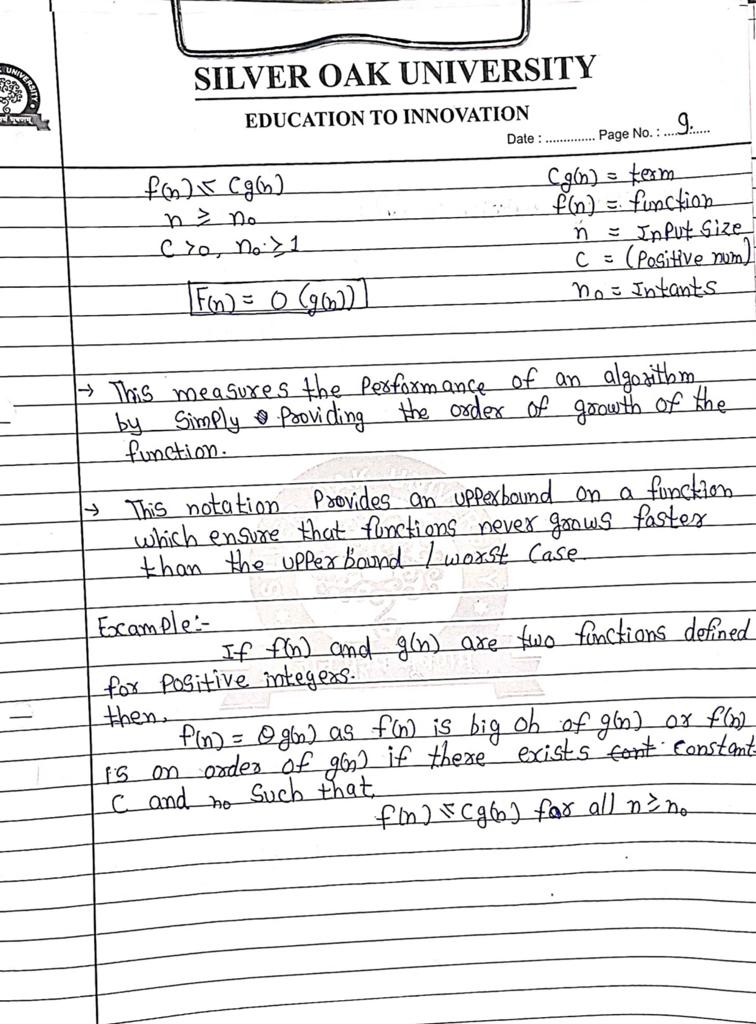 SILVER OAK UNIVERSITY
EDUCATION TO INNOVATION
Date : .............. Page No. : ....9......
f(n) ≤ Cg(n)
n ≥ n₀
C >0, n₀ ≥ 1
F(n) = O (g(n))
Cg(n) = term
f(n) = function
n = Input Size
C = (Positive num)
n₀ = Intants
→ This measures the Performance of an algorithm
by Simply Providing the order of growth of the
function.
→ This notation Provides an upperbound on a function
which ensure that functions never grows faster
than the upper bound / worst Case
Example:-
If f(n) and g(n) are two functions defined
for Positive integers.
then,
f(n) = Og(n) as f(n) is big oh of g(n) or f(n)
is on order of g(n) if there exists cont constant
C and no Such that,
f(n) ≤ cg(n) for all n ≥ n₀